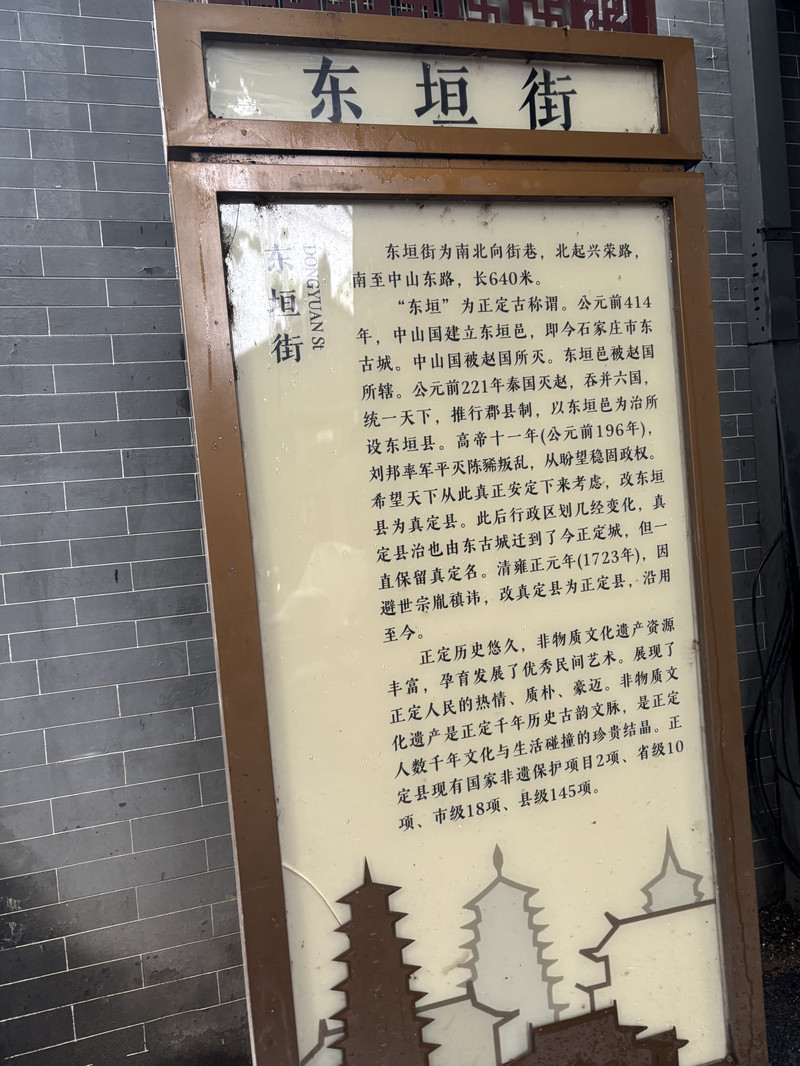 东垣街
东垣街
DONGYUAN St
东垣街为南北向街巷，北起兴荣路，
南至中山东路，长640米。
“东垣”为正定古称谓。公元前414
年，中山国建立东垣邑，即今石家庄市东
古城。中山国被赵国所灭。东垣邑被赵国
所辖。公元前221年秦国灭赵，吞并六国，
统一天下，推行郡县制，以东垣邑为治所
设东垣县。高帝十一年(公元前196年)，
刘邦率军平灭陈豨叛乱，从盼望稳固政权。
希望天下从此真正安定下来考虑，改东垣
县为真定县。此后行政区划几经变化，真
定县治也由东古城迁到了今正定城，但一
直保留真定名。清雍正元年(1723年)，因
避世宗胤禛讳，改真定县为正定县，沿用
至今。
正定历史悠久，非物质文化遗产资源
丰富，孕育发展了优秀民间艺术。展现了
正定人民的热情、质朴、豪迈。非物质文
化遗产是正定千年历史古韵文脉，是正定
人数千年文化与生活碰撞的珍贵结晶。正
定县现有国家非遗保护项目2项、省级10
项、市级18项、县级145项。